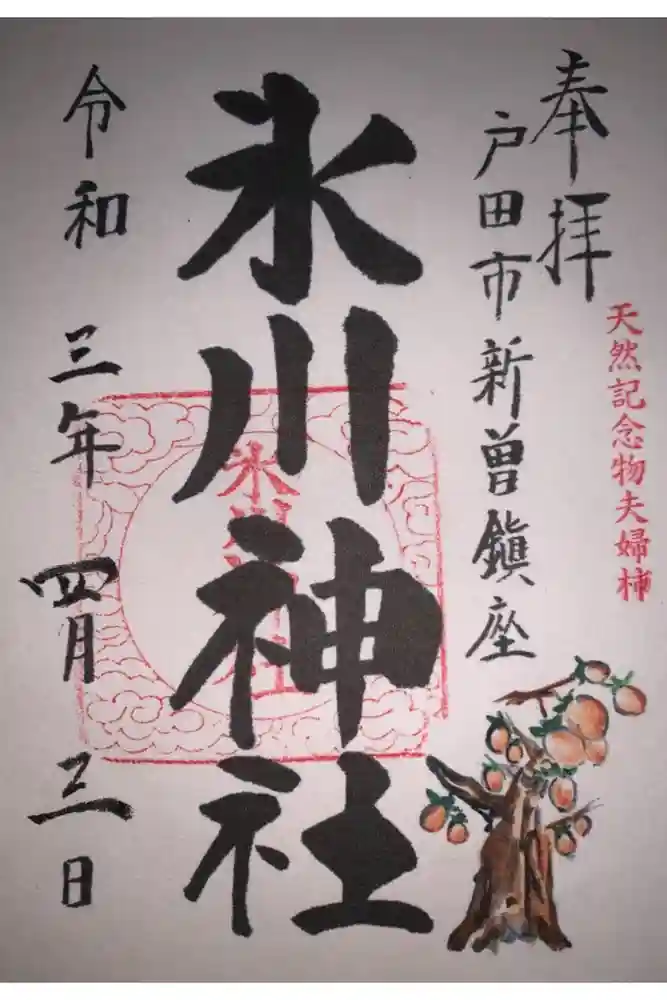 奉拝
天然記念物夫婦柿
戸田市新曽鎮座
氷川神社
氷川神社
令和三年四月三日